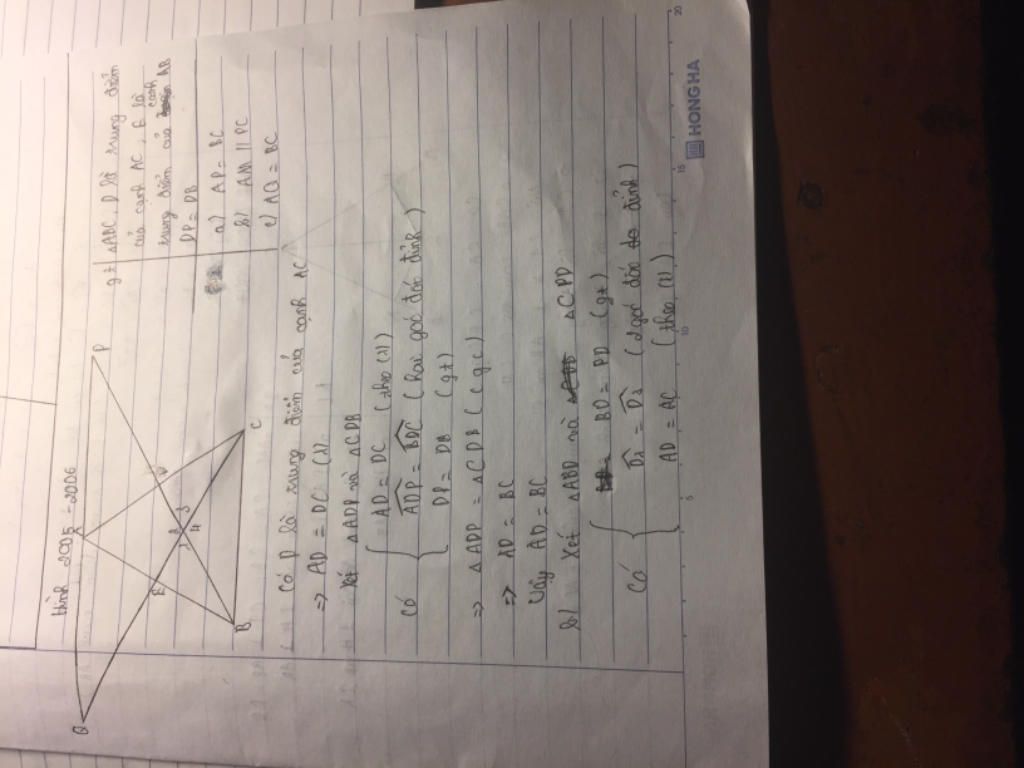 Hình 2005-2006
Q
A
P
E
D
B
C
1
2
3
4
gt ΔABC, D là trung điểm
của cạnh AC, E là
trung điểm của cạnh AB
DP = DB
a) AP = BC
b) AM // PC
c) AQ = BC
Có D là trung điểm của cạnh AC
=> AD = DC (1)
Xét ΔADP và ΔCDB
AD = DC (theo (1))
Có ADP = BDC (hai góc đối đỉnh)
DP = DB (gt)
=> ΔADP = ΔCDB (cgc)
=> AD = BC
Vậy AD = BC
b/ Xét ΔABD và ΔCPD
BD = PD (gt)
Có D₁ = D₃ (2 góc đối đỉnh)
AD = AC (theo (1))
5
10
15
20
HONG HA